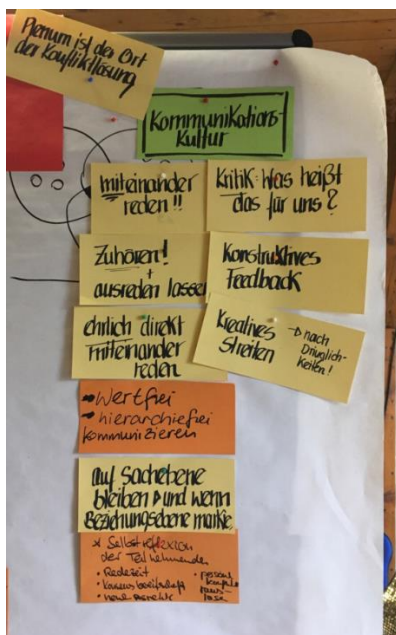 Plenum ist der Ort
der Konfliktlösung
Kommunikations-
Kultur
miteinander
reden !!
Kritik: was heißt
das für uns ?
Zuhören!
+
ausreden lassen
Konstruktives
Feedback
ehrlich direkt
miteinander
reden
Kreatives
Streiten
→ nach
Dringlich-
keiten!
→ Wertfrei
→ hierarchiefrei
kommunizieren
auf Sachebene
bleiben → und wenn
Beziehungsebene
* Selbstreflexion
der Teilnehmenden
• Redezeit
• Konsensbereitschaft
• neue Aspekte